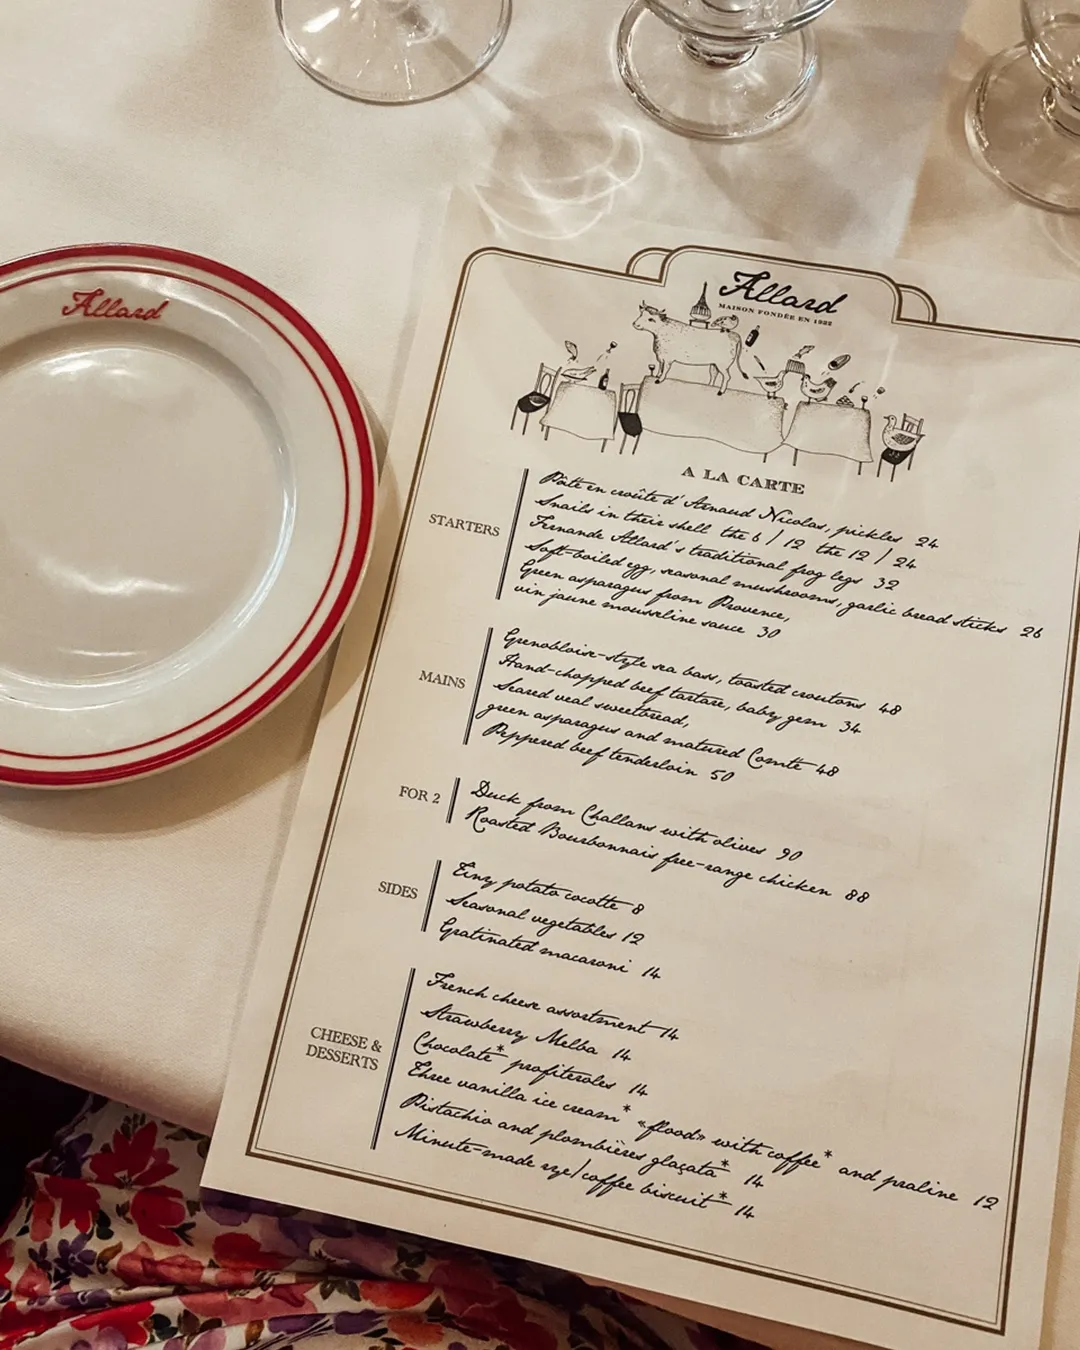 Allard
Allard
MAISON FONDÉE EN 1932
A LA CARTE
STARTERS
Pâté en croûte d'Arnaud Nicolas, pickles 24
Snails in their shell the 6 / 12 the 12 / 24
Fernande Allard's traditional frog legs 32
Soft-boiled egg, seasonal mushrooms, garlic bread sticks 26
Green asparagus from Provence,
vin jaune mousseline sauce 30
MAINS
Grenobloise-style sea bass, toasted croutons 48
Hand-chopped beef tartare, baby gem 34
Seared veal sweetbread,
green asparagus and matured Comté 48
Peppered beef tenderloin 50
FOR 2
Duck from Challans with olives 90
Roasted Bourbonnais free-range chicken 88
SIDES
Tiny potato cocotte 8
Seasonal vegetables 12
Gratinated macaroni 14
CHEESE &
DESSERTS
French cheese assortment 14
Strawberry Melba 14
Chocolate* profiteroles 14
Three vanilla ice cream* «flood» with coffee* and praline 12
Pistachio and plombières glaçata* 14
Minute-made rye/coffee biscuit* 14